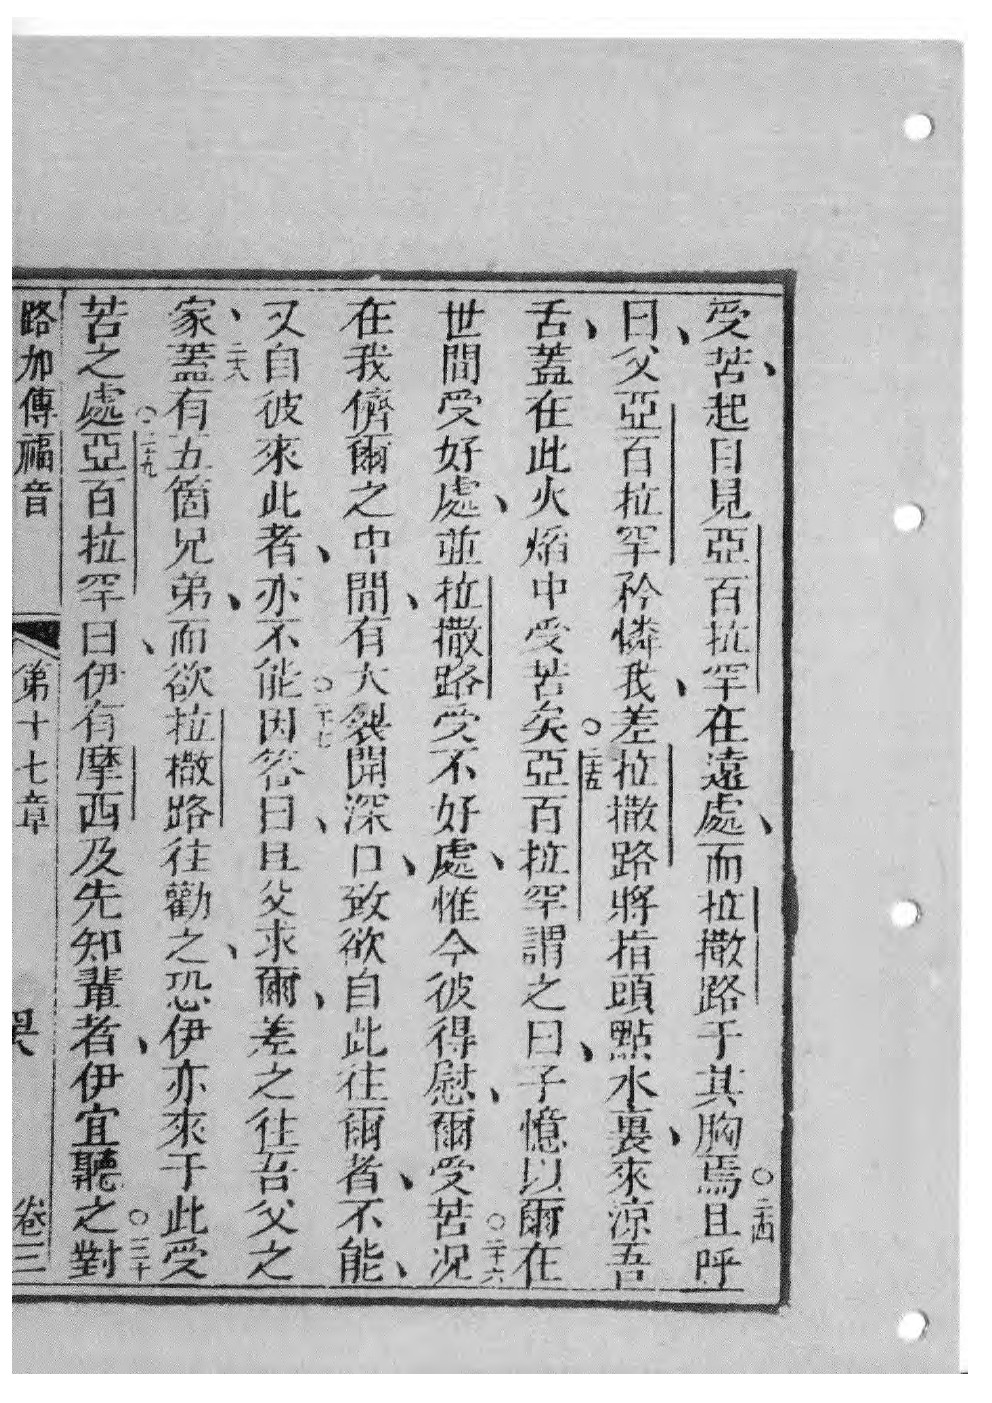 受苦、起目見亞百拉罕在遠處、而拉撒路于其胸焉。二十四且呼
曰、父亞百拉罕矜憐我、差拉撒路將指頭點水裏、來涼吾
舌、蓋在此火焰中受苦矣。二十五亞百拉罕謂之曰、子憶以爾在
世間受好處、並拉撒路受不好處、惟今彼得慰、爾受苦。二十六況
在我儕爾之中間、有大裂開深口、致欲自此往爾者、不能、
又自彼來此者、亦不能。二十七因答曰、且父求爾、差之往吾父之
家、二十八蓋有五箇兄弟、而欲拉撒路往勸之、恐伊亦來于此受
苦之處。二十九亞百拉罕曰、伊有摩西及先知輩者、伊宜聽之。三十對
路加傳福音 第十七章 卷三